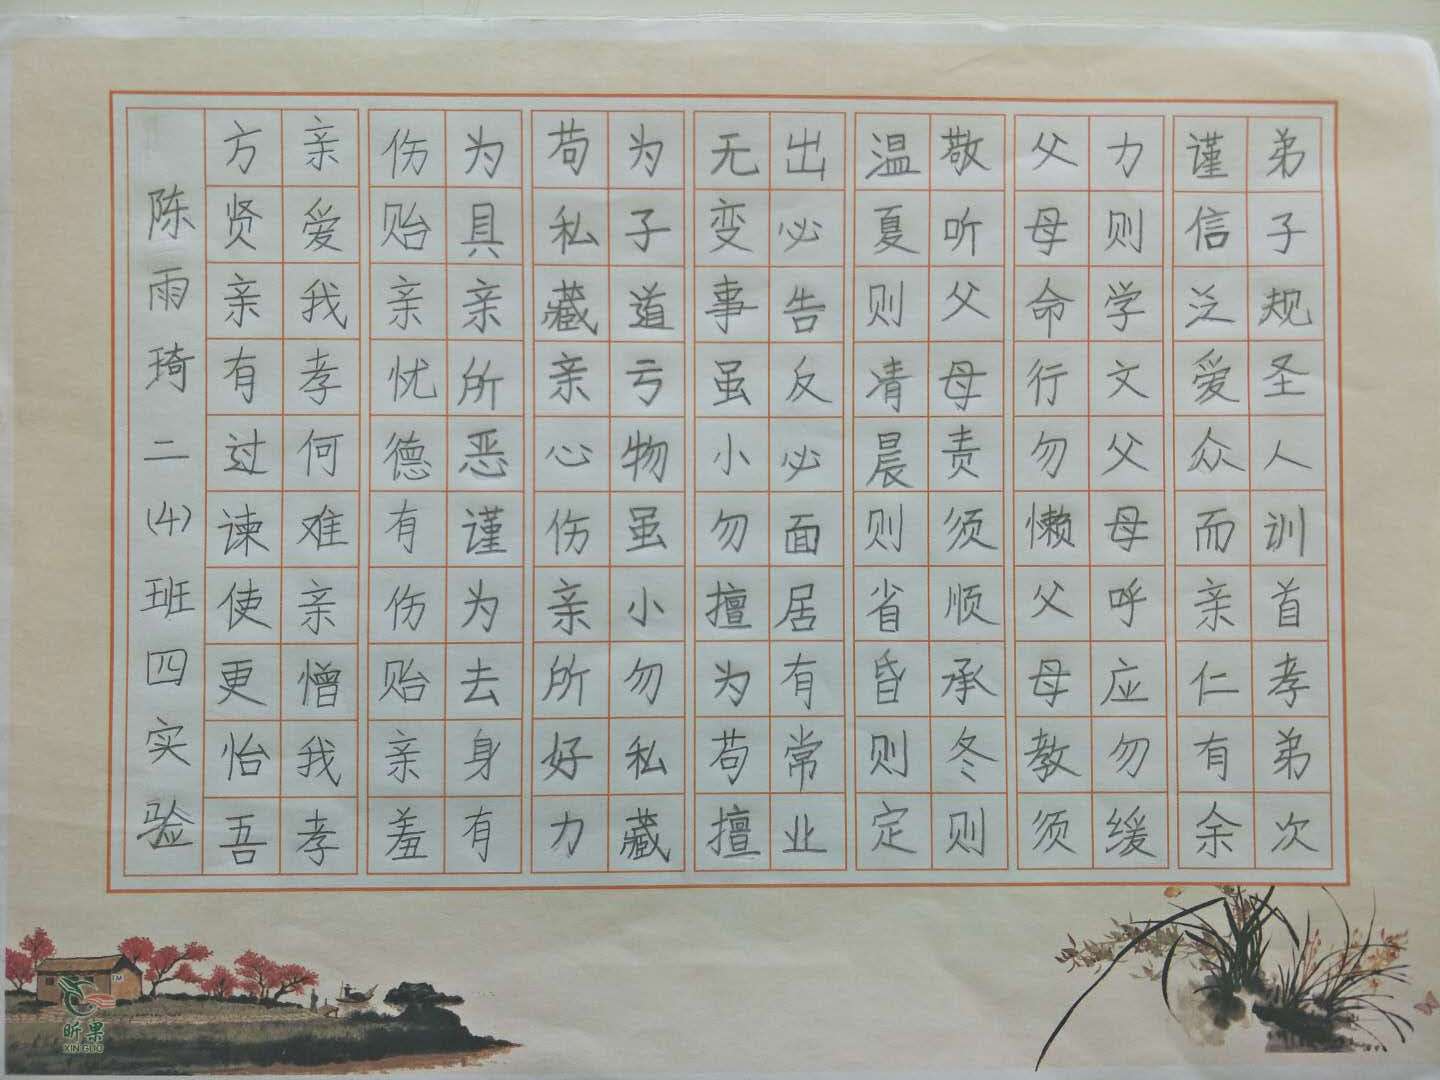 弟子规圣人训首孝弟次
谨信泛爱众而亲仁有余
力则学文父母呼应勿缓
父母命行勿懒父母教须
敬听父母责须顺承冬则
温夏则凊晨则省昏则定
出必告反必面居有常业
无变事虽小勿擅为苟擅
为子道亏物虽小勿私藏
苟私藏亲心伤亲所好力
为具亲所恶谨为去身有
伤贻亲忧德有伤贻亲羞
亲爱我孝何难亲憎我孝
方贤亲有过谏使更怡吾
陈雨琦二(4)班四实验
昕果
XINGUO
TM